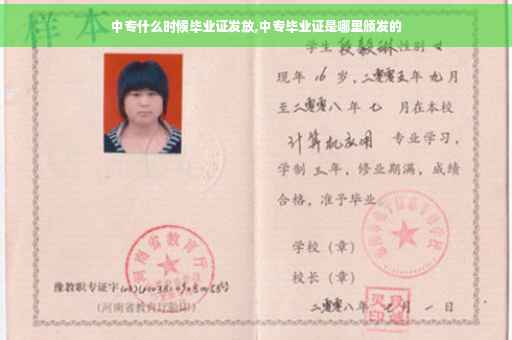 中专什么时候毕业证发放,中专毕业证是哪里颁发的
样本
学生段毅琳性别女
现年16岁,二零零五年九月
至二零零八年七月在本校
计算机应用 专业学习,
学制三年,修业期满,成绩
合格,准予毕业
学校(章)
校长(章)
二零零八年七月一日
河南省教育厅
豫教职专证字
(河南省教育厅验印)